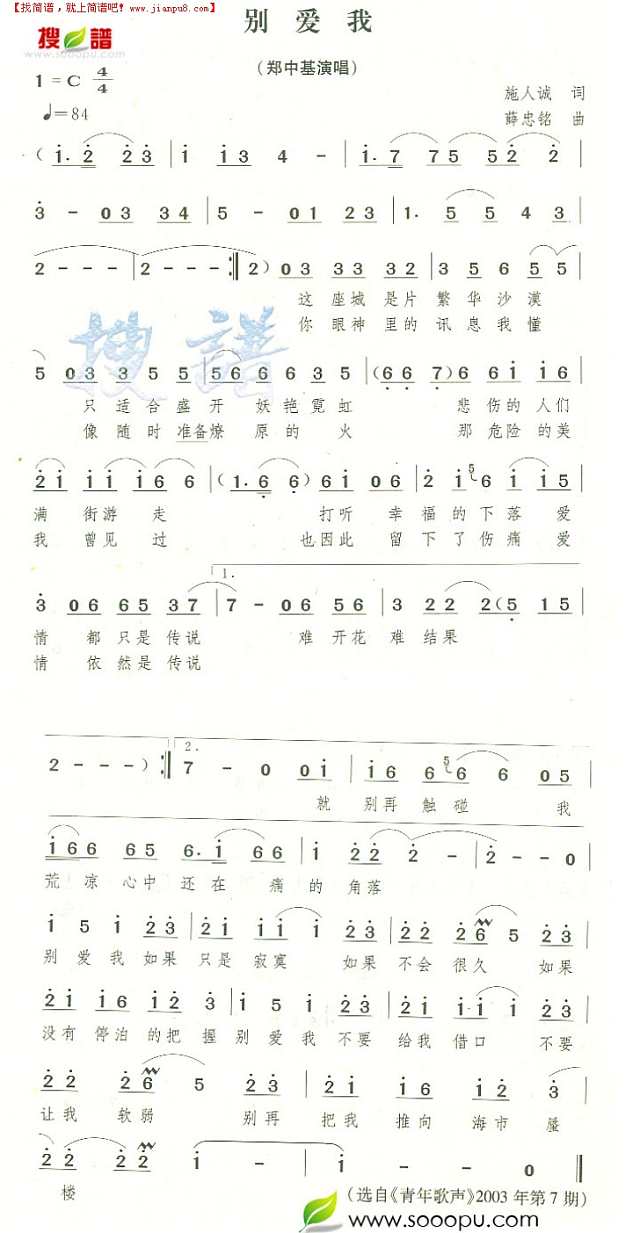 【找简谱，就上简谱吧! www.jianpu8.com】
搜谱
www.sooopu.com
别 爱 我
(郑中基演唱)
1 = C 4/4
♩=84
施人诚 词
薛忠铭 曲
( 1. 2 2 3 | 1 1 3 4 - | 1. 7 7 5 5 2 2 |
3 - 0 3 3 4 | 5 - 0 1 2 3 | 1. 5 5 4 3 |
2 - - - | 2 - - - :|| 2 ) 0 3 3 3 3 2 | 3 5 6 5 5 |
这 座城 是片 繁 华 沙 漠
你 眼神 里的 讯 息 我 懂
5 0 3 3 5 5 | 5 6 6 6 3 5 | (6 6 7) 6 6 1 1 6 |
只 适合 盛 开 妖艳霓虹 悲伤的 人们
像 随时 准备燎 原 的 火 那危险 的美
2 1 1 1 1 6 6 | (1. 6 6) 6 1 0 6 | 2 1 5 6 1 1 5 |
满 街游 走 打听 幸 福的下落 爱
我 曾见 过 也因此 留 下了伤痛 爱
1.
3 0 6 6 5 3 7 | 7 - 0 6 5 6 | 3 2 2 2 (5 1 5 |
情 都 只是 传说 难 开花 难 结果
情 依 然是 传说
2.
2 - - - ) :|| 7 - 0 0 1 | 1 6 6 5 6 6 6 0 5 |
就 别再 触碰 我
1 6 6 6 5 6. 1 6 6 | 1 2 2 2 - | 2 - - 0 |
荒 凉 心中 还在 痛 的 角落
1 5 1 2 3 | 2 1 1 1 1 2 3 | 2 2 2 6 5 2 3 |
别 爱 我 如果 只是 寂寞 如果 不会 很久 如果
2 1 1 6 1 2 3 | 2 1 3 2 3 | 2 1 1. 6 1 1 2 3 |
没有 停泊 的把 握 别 爱 我 不要 给我 借口 不要
2 2 2 6 5 2 3 | 2 2 1 2 1 2 3 |
让我 软弱 别再 把我 推向 海市 蜃
3 2 2 2 1 - | 1 - - 0 ||
楼
(选自《青年歌声》2003 年第 7 期)
www.sooopu.com